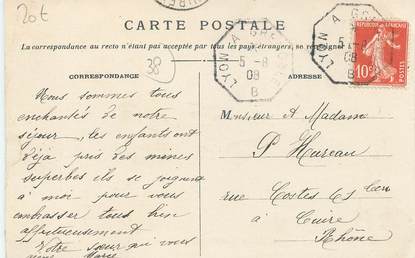 20t
CARTE POSTALE
La correspondance au recto n'étant pas acceptée par tous les pays étrangers, se renseigner
38
CORRESPONDANCE
ADRESSE
LYON A
5 - 8
08
B
LYON A
5 - 8
08
B
10
Nous sommes tous
enchantés de notre
séjour, les enfants ont
déjà pris des mines
superbes ils se joignent
à moi pour vous
embrasser tous bien
affectueusement
Votre sœur qui vous
aime Marie
Monsieur & Madame
P Hureau
rue Costes
à Cuire
Rhône